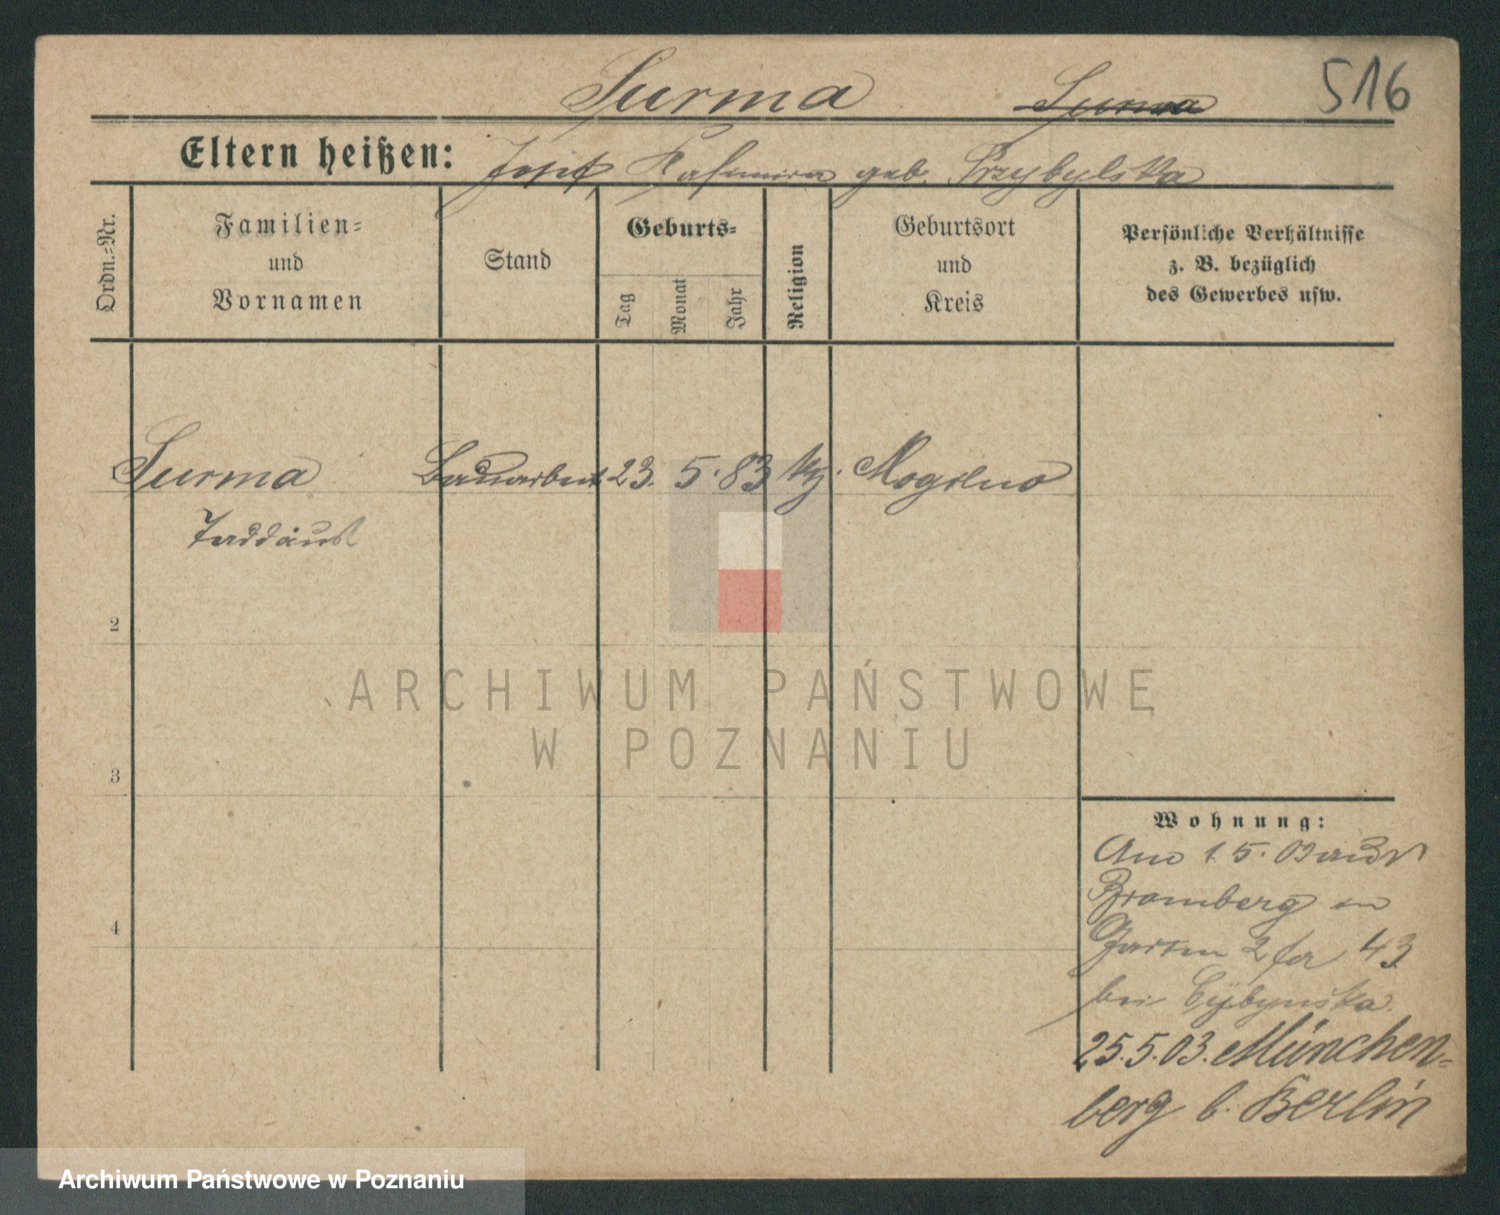 Surma Surma 516
Eltern heißen: Josef Kasimira geb. Przybylska
Ordn.-Nr.
Familien-
und
Vornamen
Stand
Geburts-
Tag
Monat
Jahr
Religion
Geburtsort
und
Kreis
Persönliche Verhältnisse
z. B. bezüglich
des Gewerbes usw.
Surma Bauarbeit. 23. 5. 83 Mogilno
Taddäus
2
3
4
ARCHIWUM PAŃSTWOWE
W POZNANIU
Wohnung:
1. 5. 03 aus
Bromberg in
Garten 2 43
bei Cybynska.
25.5.03. München-
berg b. Berlin
Archiwum Państwowe w Poznaniu